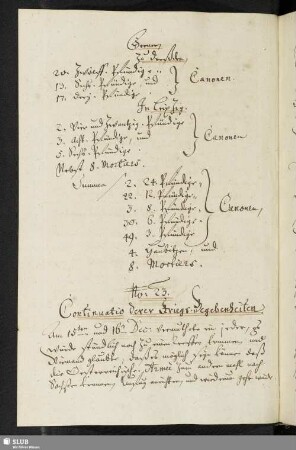 Ferner
Zu Dresden,
20. Zwölff-Pfündige,
13. Sechs-Pfündige und } Canonen.
17. drey-Pfündige
In Leipzig.
2. Vier und Zwantzig-Pfündige
3. Acht-Pfündige, und } Canonen
5. Sechs-Pfündige.
Nebst 8. Mortiers.
Summa 2. 24. Pfündige,
22. 12. Pfündige
3. 8. Pfündige } Canonen,
30. 6. Pfündige
49. 3. Pfündige
4. Haubitzen, und
8. Mortiers.
No: 23.
Continuatio derer Kriegs-Begebenheiten.
Am 15ten und 16t. Dec: vermuthete ein jeder, es
würde stündlich noch zu
Niemand glaubte, daß es möglich seyn könne daß
die Österreichische Armee zum andern mahl nach
Sachsen und wiederum